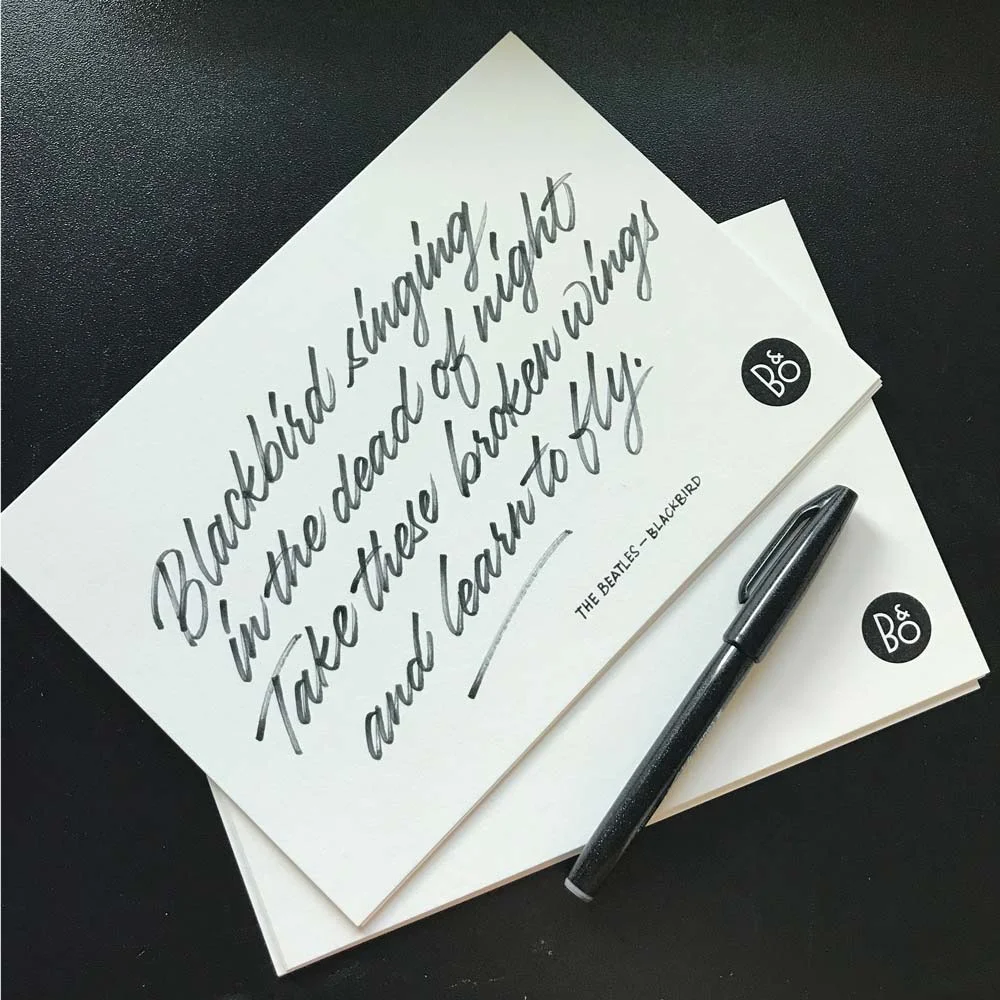 Blackbird singing
in the dead of night
Take these broken wings
and learn to fly.
THE BEATLES – BLACKBIRD
B&O
B&O